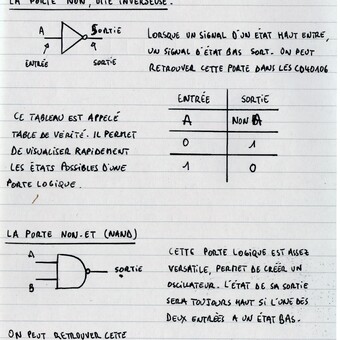 LA PORTE NON, DITE INVERSEUSE.
A SORTIE
ENTRÉE
LORSQUE UN SIGNAL D'UN ÉTAT HAUT ENTRE,
UN SIGNAL D'ÉTAT BAS SORT. ON PEUT
RETROUVER CETTE PORTE DANS LES CD40106
ENTRÉE SORTIE
A NON A
0 1
1 0
CE TABLEAU EST APPELÉ
TABLE DE VÉRITÉ. IL PERMET
DE VISUALISER RAPIDEMENT
LES ÉTATS POSSIBLES D'UNE
PORTE LOGIQUE.
LA PORTE NON-ET (NAND)
A
SORTIE
B
CETTE PORTE LOGIQUE EST ASSEZ
VERSATILE, PERMET DE CRÉER UN
OSCILLATEUR. L'ÉTAT DE SA SORTIE
SERA TOUJOURS HAUT SI L'UNE DES
DEUX ENTRÉES A UN ÉTAT BAS.
ON PEUT RETROUVER CETTE